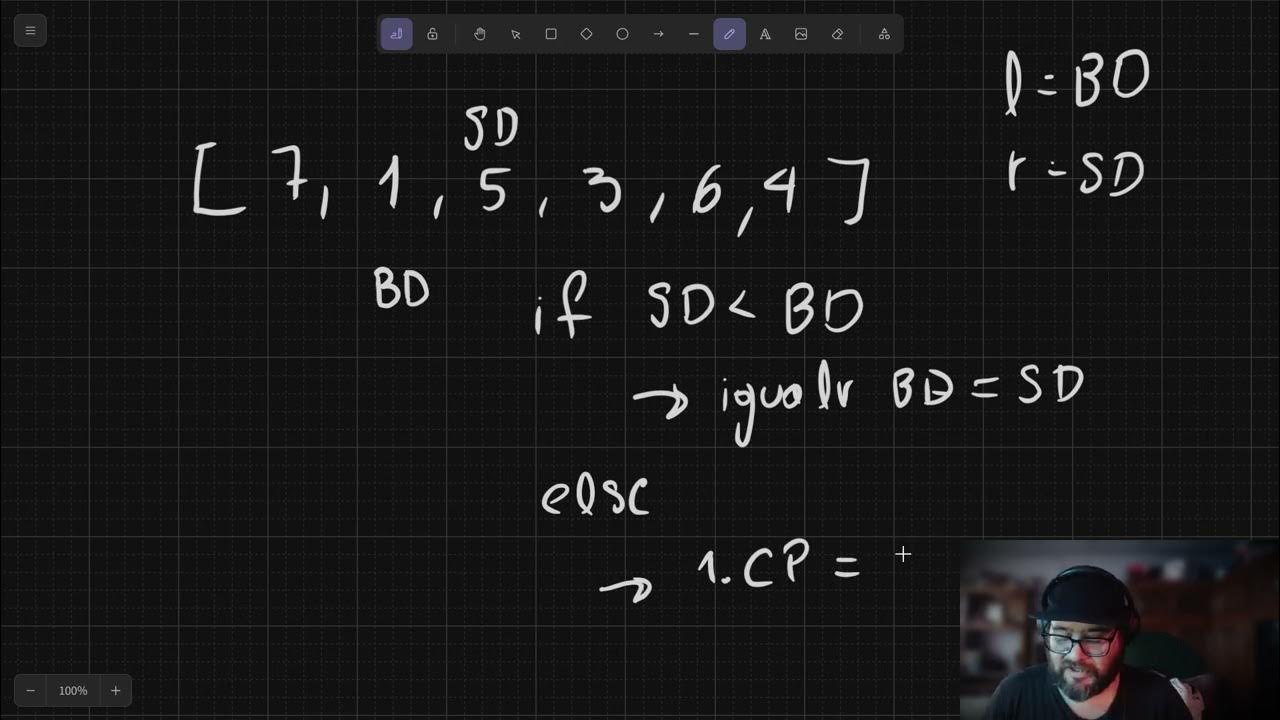 l = BD
SD
r = SD
[ 7, 1, 5, 3, 6, 4 ]
BD
if SD < BD
→ igualr BD = SD
else
→ 1. CP =
100%